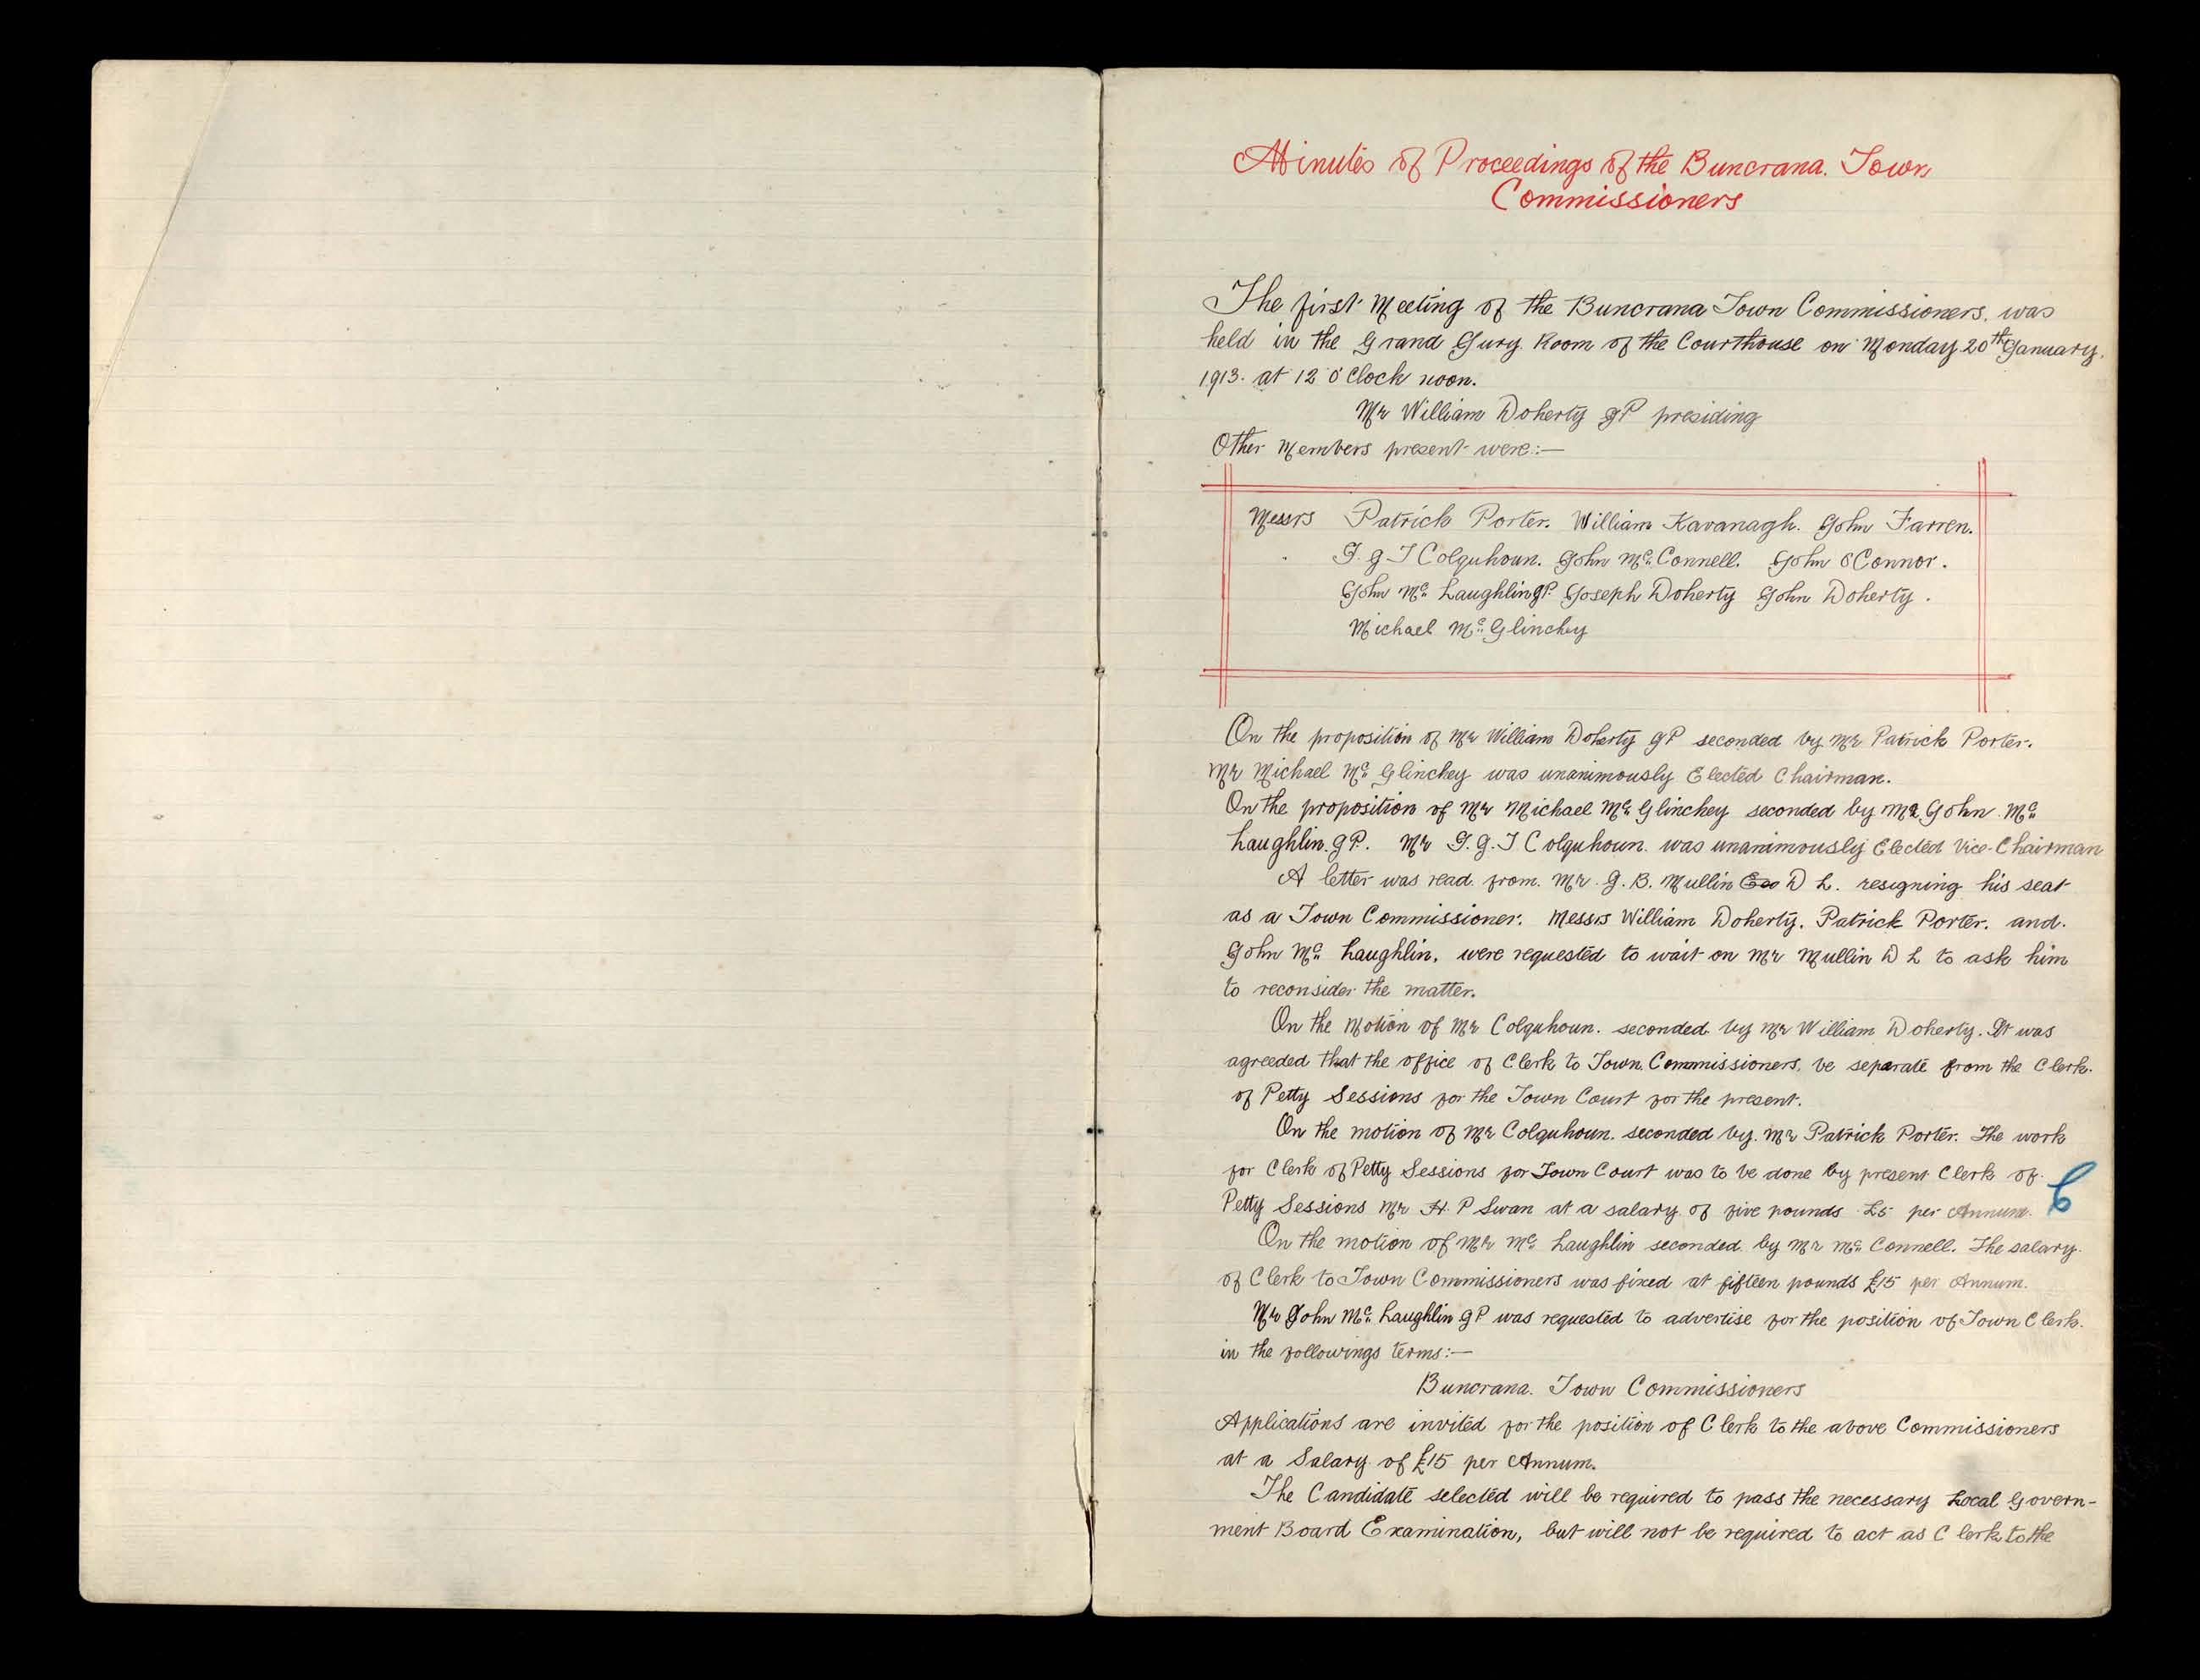 Minutes of Proceedings of the Buncrana. Town
Commissioners
The first Meeting of the Buncrana Town Commissioners. was
held in the Grand Jury Room of the Courthouse on Monday 20th January.
1913. at 12 o'Clock noon.
Mr William Doherty JP presiding
Other Members present were:—
Messrs Patrick Porter. William Kavanagh. John Farren.
J T Colquhoun. John Mc Connell. John O'Connor.
John Mc Laughlin JP. Joseph Doherty John Doherty.
Michael Mc Glinchy
On the proposition of Mr William Doherty JP seconded by Mr Patrick Porter.
Mr Michael Mc Glinchey was unanimously Elected Chairman.
On the proposition of Mr Michael Mc Glinchey seconded by Mr John Mc
Laughlin. JP. Mr J. T Colquhoun. was unanimously Elected Vice-Chairman
A letter was read from. Mr. J. B. Mullin D L. resigning his seat
as a Town Commissioner. Messrs William Doherty. Patrick Porter. and.
John Mc Laughlin. were requested to wait on Mr Mullin D L to ask him
to reconsider the matter.
On the Motion of Mr Colquhoun. seconded by Mr William Doherty. It was
agreeded that the office of Clerk to Town Commissioners. be separate from the Clerk.
of Petty Sessions for the Town Court for the present.
On the motion of Mr Colquhoun. seconded by. Mr Patrick Porter. The work
for Clerk of Petty Sessions for Town Court was to be done by present Clerk of.
Petty Sessions Mr H. P Swan at a salary of five pounds £5 per Annum.
On the motion of Mr Mc Laughlin seconded by Mr Mc Connell. The salary.
of Clerk to Town Commissioners was fixed at fifteen pounds £15 per Annum.
Mr John Mc Laughlin JP was requested to advertise for the position of Town Clerk.
in the followings terms:—
Buncrana. Town Commissioners
Applications are invited for the position of Clerk to the above Commissioners
at a Salary of £15 per Annum.
The Candidate selected will be required to pass the necessary Local Govern-
ment Board Examination, but will not be required to act as Clerk to the